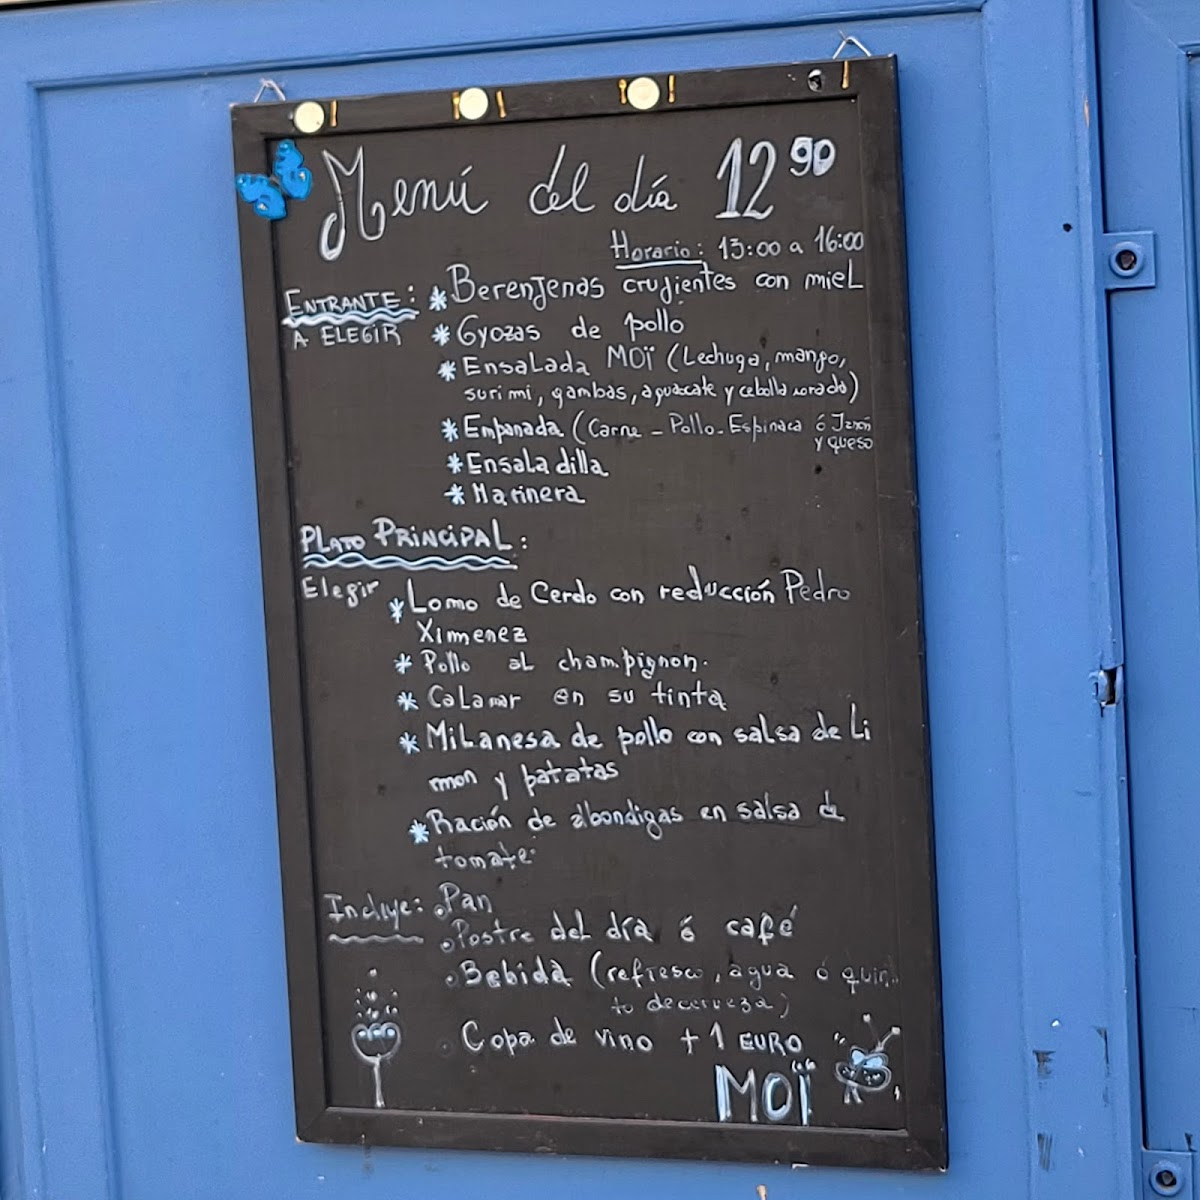 Menú del día 12 90
Horario: 13:00 a 16:00
ENTRANTE:
A ELEGIR
* Berenjenas crujientes con miel
* Gyozas de pollo
* Ensalada MOÏ (Lechuga, mango,
surimi, gambas, aguacate y cebolla morada)
* Empanada (Carne - Pollo - Espinaca ó Jamón
y queso
* Ensaladilla
* Marinera
PLATO PRINCIPAL:
Elegir
* Lomo de Cerdo con reducción Pedro
Ximenez
* Pollo al champignon.
* Calamar en su tinta
* Milanesa de pollo con salsa de Li
mon y patatas
* Ración de albondigas en salsa de
tomate.
Incluye:
Pan
Postre del día ó café
Bebida (refresco, agua ó quin
to de cerveza)
Copa de vino + 1 EURO
MOÏ